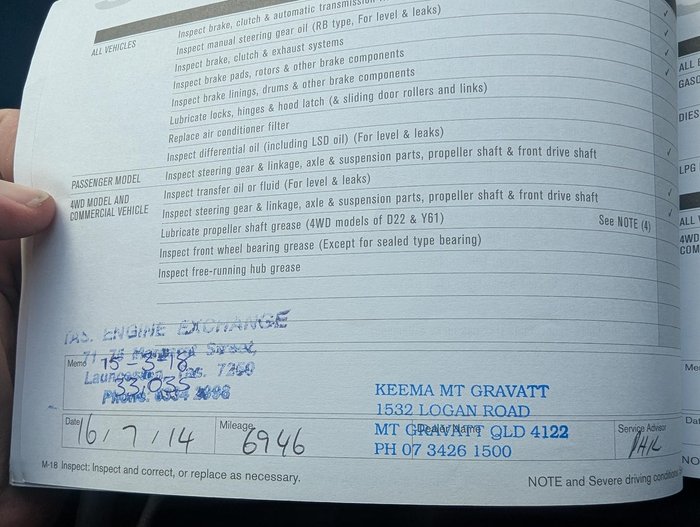 Inspect brake, clutch & automatic transmission
ALL VEHICLES
Inspect manual steering gear oil (RB type, For level & leaks)
Inspect brake, clutch & exhaust systems
Inspect brake pads, rotors & other brake components
Inspect brake linings, drums & other brake components
Lubricate locks, hinges & hood latch (& sliding door rollers and links)
Replace air conditioner filter
Inspect differential oil (including LSD oil) (For level & leaks)
PASSENGER MODEL Inspect steering gear & linkage, axle & suspension parts, propeller shaft & front drive shaft
4WD MODEL AND COMMERCIAL VEHICLE
Inspect transfer oil or fluid (For level & leaks)
Inspect steering gear & linkage, axle & suspension parts, propeller shaft & front drive shaft
Lubricate propeller shaft grease (4WD models of D22 & Y61) See NOTE (4)
Inspect front wheel bearing grease (Except for sealed type bearing)
Inspect free-running hub grease
TAS. ENGINE EXCHANGE
Street,
Memo 15-3-18
Launceston Tas. 7250
33,035
Phone:
KEEMA MT GRAVATT
1532 LOGAN ROAD
MT GRAVATT QLD 4122
PH 07 3426 1500
Date 16/7/14 Mileage 6946 Dealer Name Service Advisor PHIL
M-18 Inspect: Inspect and correct, or replace as necessary.
NOTE and Severe driving conditions
ALL
DIES
LPG
ALL
4WD
COM